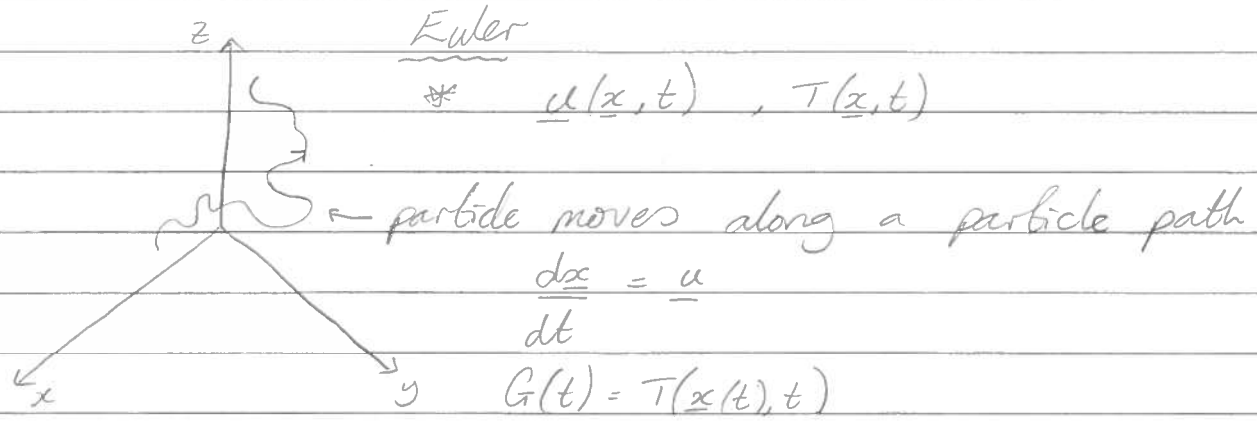 z
Euler
* u(x, t) , T(x, t)
← particle moves along a particle path
dx/dt = u
x y G(t) = T(x(t), t)